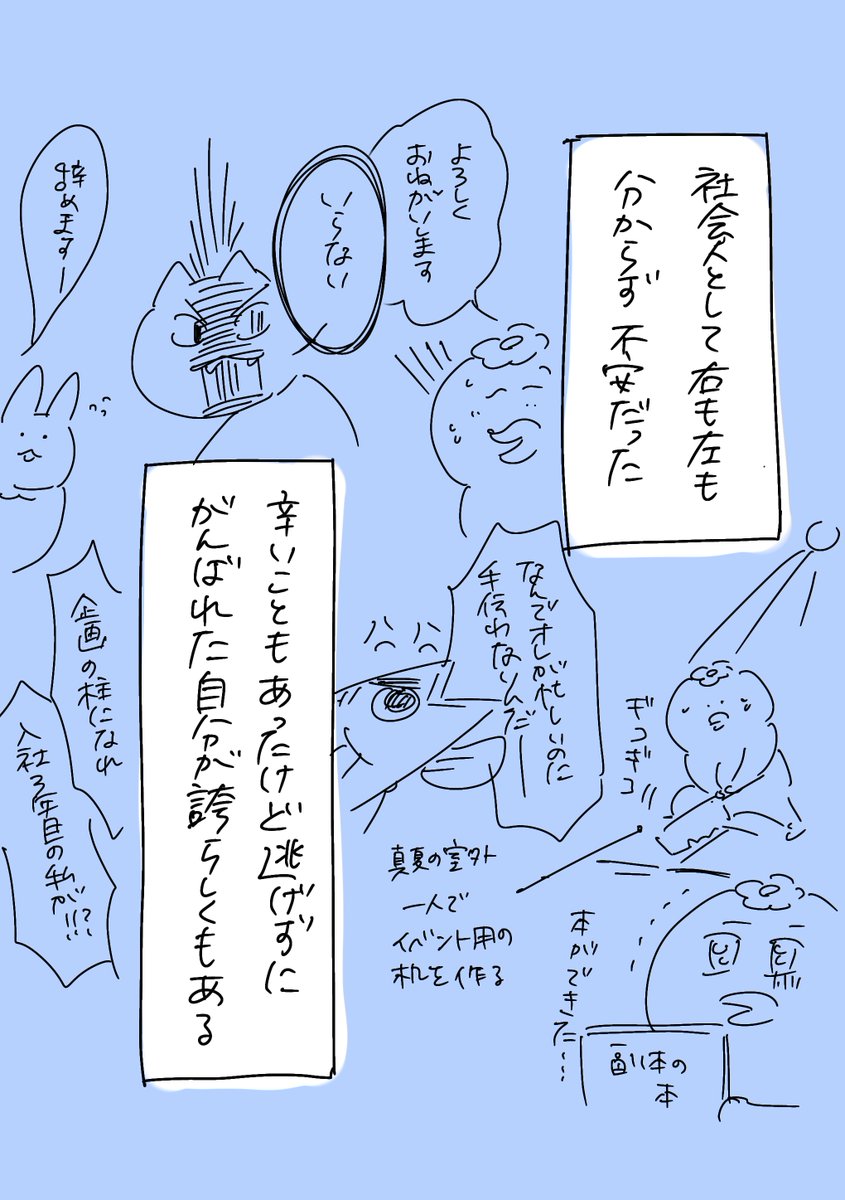 社会人として右も左も
分からず不安だった
よろしく
おねがいします
いらない
辞めますー
なんでオレが忙しいのに
手伝わないんだー
ギコギコ
真夏の室外
一人で
イベント用の
机を作る
辛いこともあったけど逃げずに
がんばれた自分が誇らしくもある
企画の柱になれ
入社3年目の私が!!?
本ができた…
副体の
本